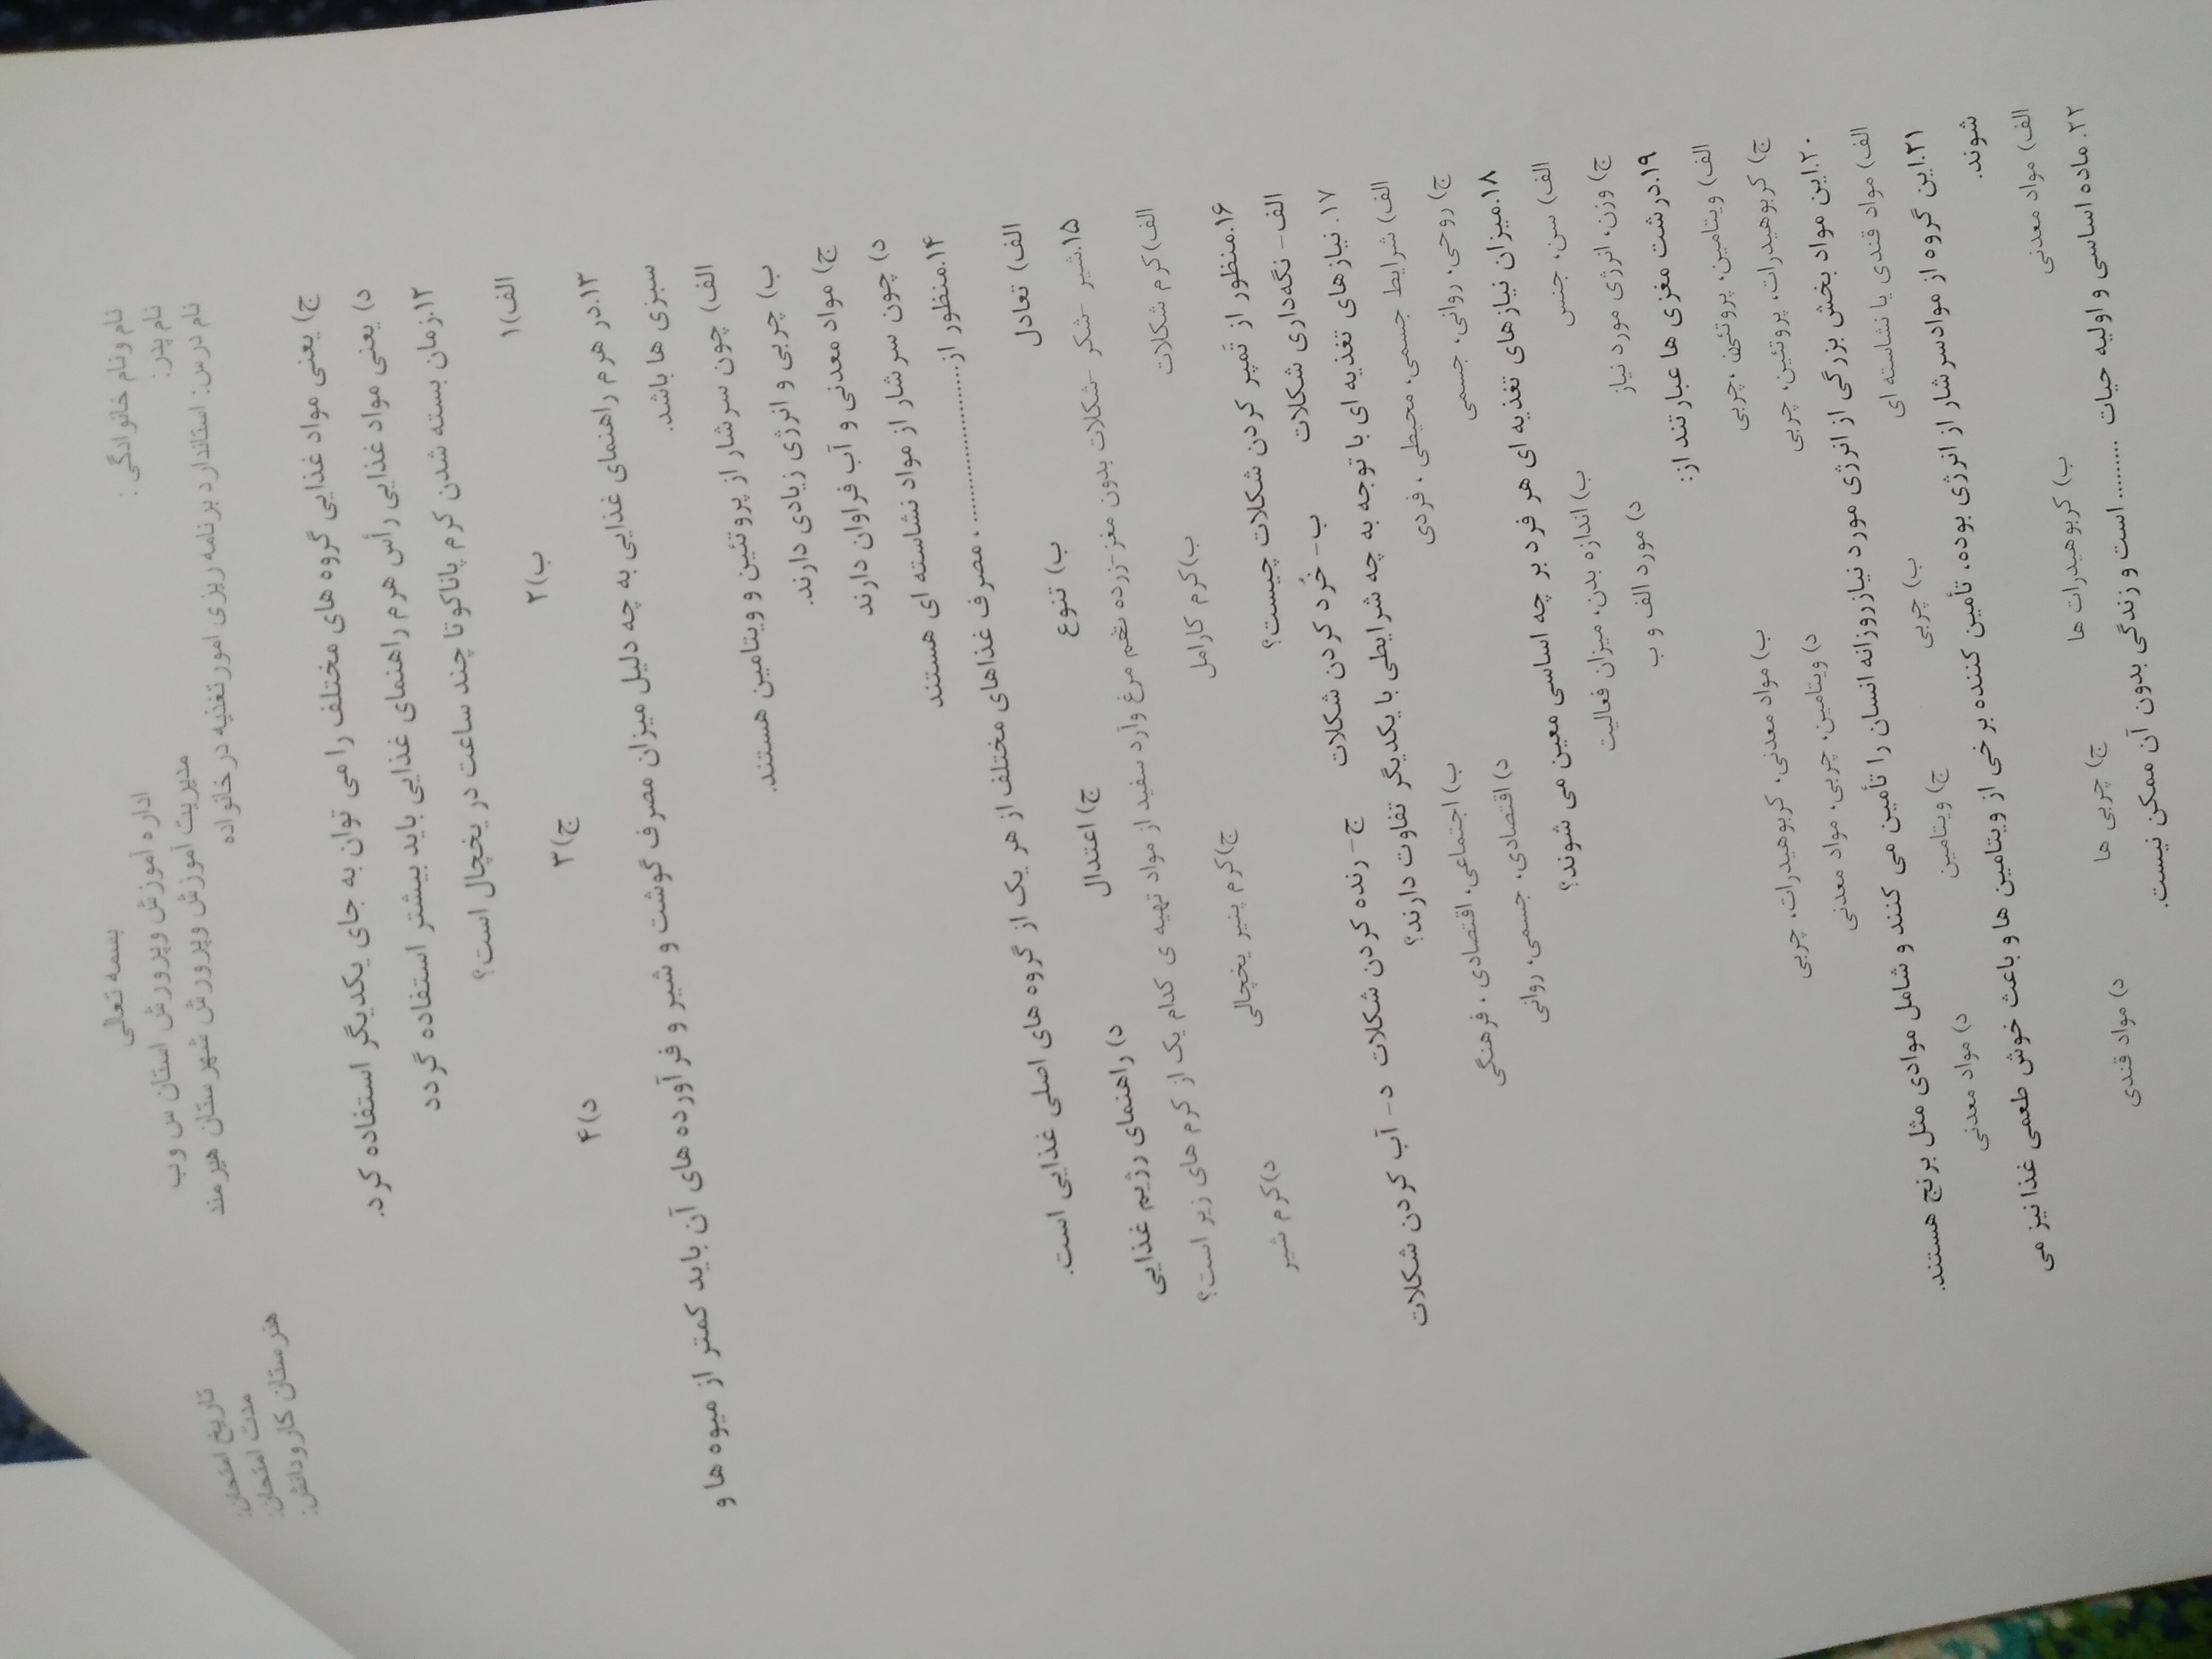 بسمه تعالی
نام ونام خانوادگی :
اداره آموزش وپرورش استان س وب
نام پدر:
مدیریت آموزش وپرورش شهرستان هیرمند
تاریخ امتحان:
نام درس: استاندارد برنامه ریزی امورتغذیه درخانواده
مدت امتحان:
هنرستان کارودانش:
ج) یعنی مواد غذایی گروه های مختلف را می توان به جای یکدیگر استفاده کرد.
د) یعنی مواد غذایی رأس هرم راهنمای غذایی باید بیشتر استفاده گردد
۱۲.زمان بسته شدن کرم پاناکوتا چند ساعت در یخچال است؟
الف)۱ ب)۲ ج)۳ د)۴
۱۳.در هرم راهنمای غذایی به چه دلیل میزان مصرف گوشت و شیر و فرآورده های آن باید کمتر از میوه ها و
سبزی ها باشد.
الف) چون سرشار از پروتئین و ویتامین هستند.
ب) چربی و انرژی زیادی دارند.
ج) مواد معدنی و آب فراوان دارند
د) چون سرشار از مواد نشاسته ای هستند
۱۴.منظور از........................ ، مصرف غذاهای مختلف از هر یک از گروه های اصلی غذایی است.
الف) تعادل ب) تنوع ج) اعتدال د) راهنمای رژیم غذایی
۱۵.شیر -شکر -شکلات بدون مغز-زرده تخم مرغ وآرد سفید از مواد تهیه ی کدام یک از کرم های زیر است؟
الف)کرم شکلات ب)کرم کارامل ج)کرم پنیر یخچالی د)کرم شیر
۱۶.منظور از تَمپر کردن شکلات چیست؟
الف- نگه‌داری شکلات ب- خُرد کردن شکلات ج- رنده کردن شکلات د- آب کردن شکلات
۱۷. نیازهای تغذیه ای با توجه به چه شرایطی با یکدیگر تفاوت دارند؟
الف) شرایط جسمی، محیطی ، فردی ب) اجتماعی، اقتصادی ، فرهنگی
ج) روحی، روانی، جسمی د) اقتصادی، جسمی، روانی
۱۸.میزان نیازهای تغذیه ای هر فرد بر چه اساسی معین می شوند؟
الف) سن، جنس ب) اندازه بدن، میزان فعالیت
ج) وزن، انرژی مورد نیاز د) مورد الف و ب
۱۹.درشت مغزی ها عبارتند از:
الف) ویتامین، پروتئین ،چربی ب) مواد معدنی، کربوهیدرات، چربی
ج) کربوهیدرات، پروتئین، چربی د) ویتامین، چربی، مواد معدنی
۲۰.این مواد بخش بزرگی از انرژی مورد نیازروزانه انسان را تأمین می کنند و شامل موادی مثل برنج هستند.
الف) مواد قندی یا نشاسته ای ب) چربی ج) ویتامین د) مواد معدنی
۲۱.این گروه از موادسرشار از انرژی بوده، تأمین کننده برخی از ویتامین ها و باعث خوش طعمی غذا نیز می
شوند.
الف) مواد معدنی ب) کربوهیدرات ها ج) چربی ها د) مواد قندی
۲۲. ماده اساسی و اولیه حیات ......... است و زندگی بدون آن ممکن نیست.